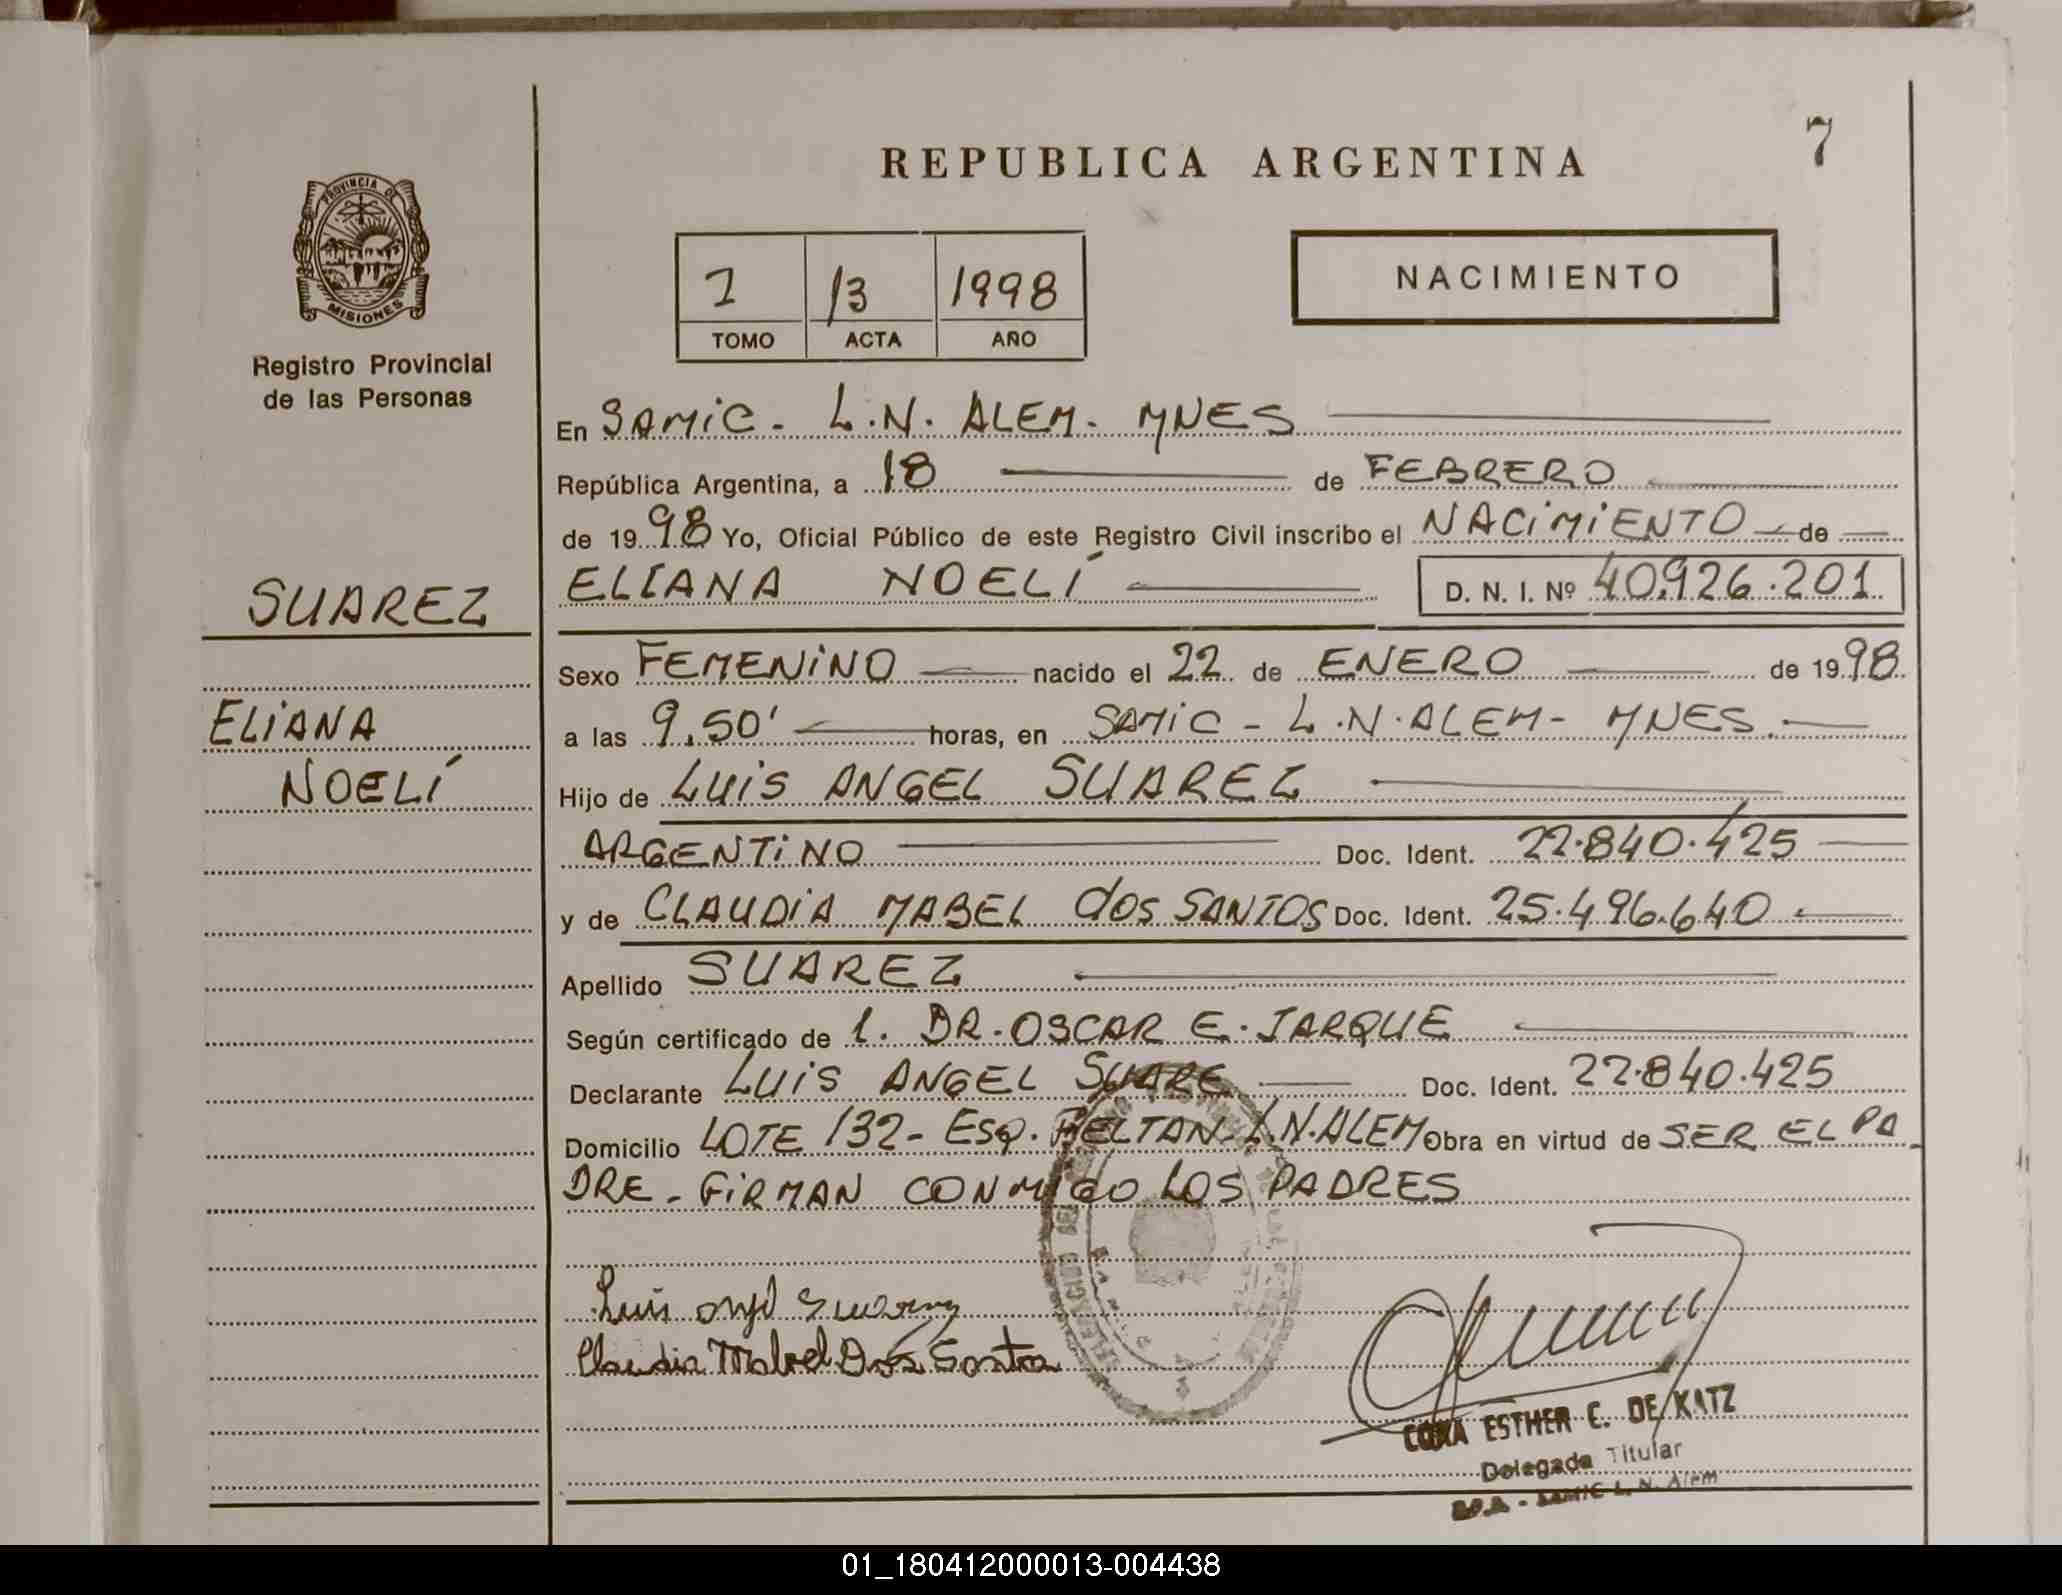 7
REPUBLICA ARGENTINA
PROVINCIA DE
MISIONES
Registro Provincial
de las Personas
1 13 1998
TOMO ACTA AÑO
NACIMIENTO
En SAMIC - L.N. ALEM - MNES
República Argentina, a 18 de FEBRERO
de 1998 Yo, Oficial Público de este Registro Civil inscribo el NACIMIENTO de
SUAREZ
ELIANA NOELÍ D. N. I. Nº 40.926.201
Sexo FEMENINO nacido el 22 de ENERO de 1998
ELIANA
a las 9.50' horas, en SAMIC - L.N. ALEM - MNES.
NOELÍ
Hijo de LUIS ANGEL SUAREZ
ARGENTINO Doc. Ident. 22.840.425
y de CLAUDIA MABEL dOS SANTOS Doc. Ident. 25.496.640
Apellido SUAREZ
Según certificado de 1. DR. OSCAR E. JARQUE
Declarante LUIS ANGEL SUARE Doc. Ident. 22.840.425
Domicilio LOTE 132 - ESQ. BELTAN - L.N. ALEM Obra en virtud de SER EL PA
DRE - FIRMAN CONMIGO LOS PADRES
Luis angel Suarez
Claudia Mabel Dos Santos
ESTHER C. DE KATZ
Delegada Titular
SAMIC L. N. Alem
01_180412000013-004438